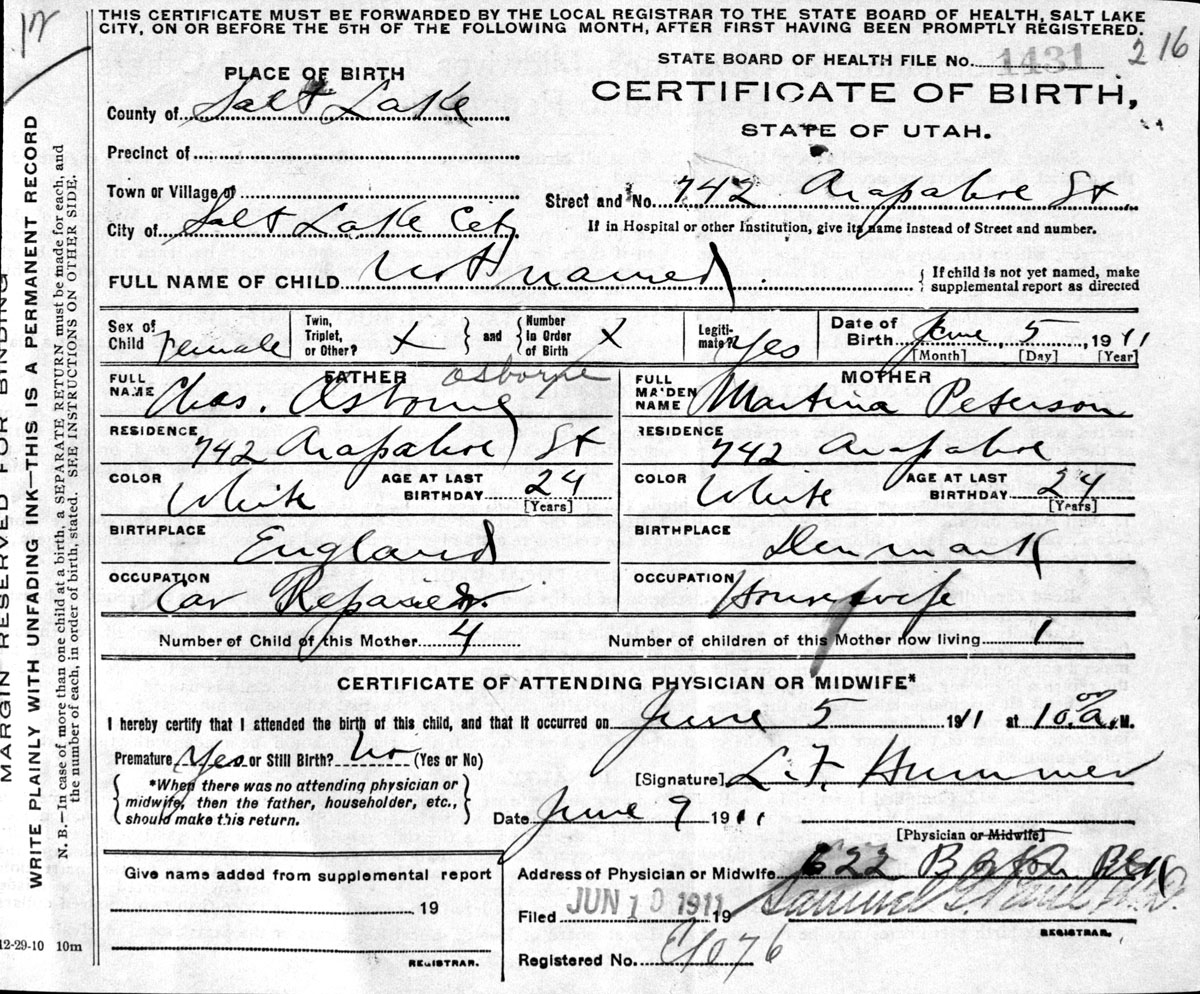 THIS CERTIFICATE MUST BE FORWARDED BY THE LOCAL REGISTRAR TO THE STATE BOARD OF HEALTH, SALT LAKE
CITY, ON OR BEFORE THE 5TH OF THE FOLLOWING MONTH, AFTER FIRST HAVING BEEN PROMPTLY REGISTERED.
216
STATE BOARD OF HEALTH FILE No. 1431
PLACE OF BIRTH
CERTIFICATE OF BIRTH,
County of Salt Lake
STATE OF UTAH.
Precinct of
Town or Village of
Street and No. 742 Arapahoe St
City of Salt Lake City
If in Hospital or other Institution, give its name instead of Street and number.
FULL NAME OF CHILD not named
If child is not yet named, make
supplemental report as directed
Sex of Child Female
Twin, Triplet, or Other? X and Number in Order of Birth X
Legiti-mate? Yes
Date of Birth June 5, 1911
[Month] [Day] [Year]
FATHER Osborne
MOTHER
FULL NAME Chas. Osborne
FULL MAIDEN NAME Martina Peterson
RESIDENCE 742 Arapahoe St
RESIDENCE 742 Arapahoe
COLOR White AGE AT LAST BIRTHDAY 24 [Years]
COLOR White AGE AT LAST BIRTHDAY 24 [Years]
BIRTHPLACE England
BIRTHPLACE Denmark
OCCUPATION Car Repairer
OCCUPATION Housewife
Number of Child of this Mother 4
Number of children of this Mother now living 1
CERTIFICATE OF ATTENDING PHYSICIAN OR MIDWIFE*
I hereby certify that I attended the birth of this child, and that it occurred on June 5 1911 at 10 a. M.
Premature Yes or Still Birth? No (Yes or No)
*When there was no attending physician or
midwife, then the father, householder, etc.,
should make this return.
[Signature] L.F. Hummer
Date June 9 1911
[Physician or Midwife]
Give name added from supplemental report
19
REGISTRAR.
Address of Physician or Midwife 622 Boston Bldg
Filed JUN 10 1911 19
Samuel G. Paul M.D.
REGISTRAR.
Registered No. 9076
12-29-10 10m
MARGIN RESERVED FOR BINDING
WRITE PLAINLY WITH UNFADING INK—THIS IS A PERMANENT RECORD
N. B.—In case of more than one child at a birth, a SEPARATE RETURN must be made for each, and
the number of each, in order of birth, stated. SEE INSTRUCTIONS ON OTHER SIDE.